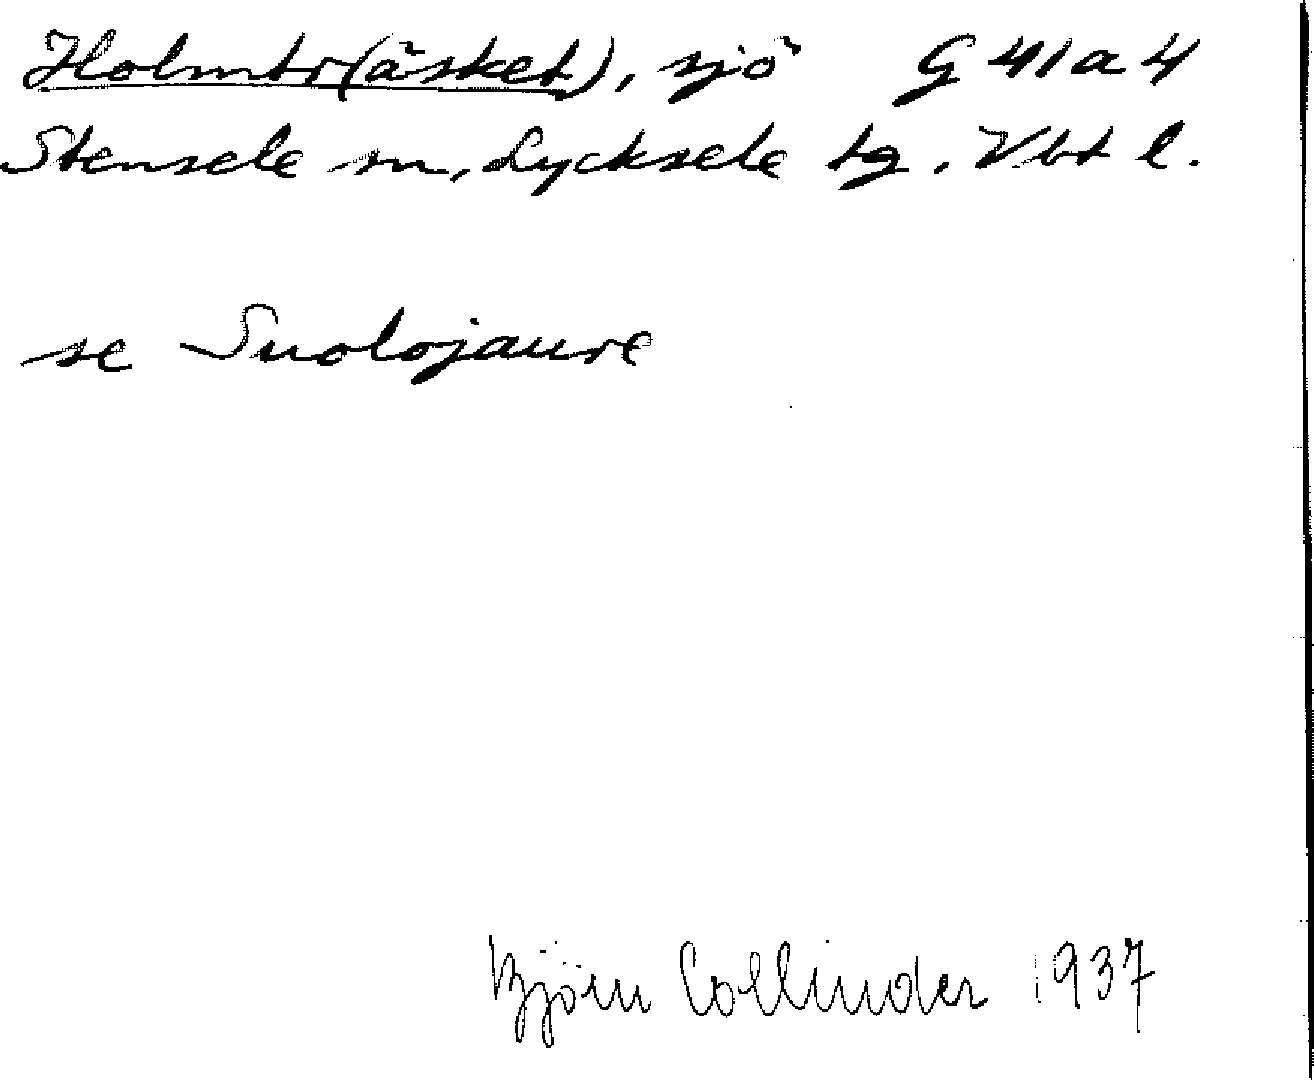 Holmtr(äsket), sjö G 41 a 4
Stensele sn, Lycksele tg. Vbt l.
se Suolojaure
Björn Collinder 1937